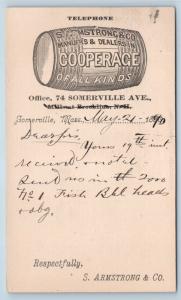 TELEPHONE
S. ARMSTRONG & CO.
MANUF'RS & DEALERS IN
COOPERAGE
OF ALL KINDS
Office, 74 SOMERVILLE AVE.,
Somerville, Mass. May 21 1890
Dear Sir,
Yours 19th inst
received & noted.
Send us in 2000
No 1 Fish Bbl heads
& obg.
Respectfully,
S. ARMSTRONG & CO.